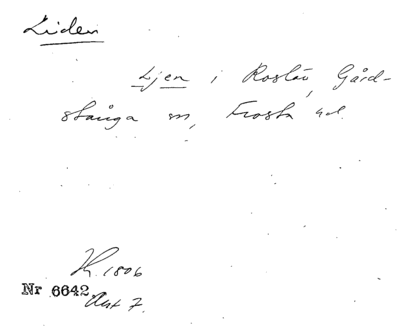 Liden
Ljen i Roslöv, Gård-
stånga sn, Frosta hd.
K. 1806
Nr 6642 Akt 7.